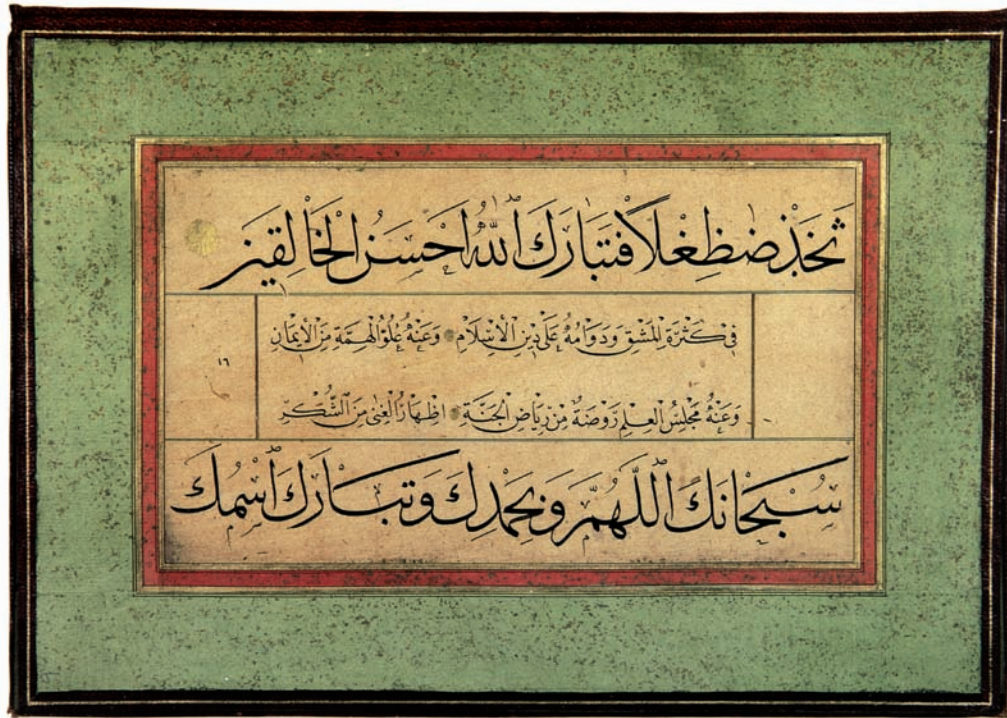 ثَخَذْ ضَظِغْلًا فَتَبَارَكَ اللّٰهُ اَحْسَنُ الْخَالِقِينَ
فِى كَثْرَةِ الْمَشْقِ وَدَوَامُهُ عَلَى دِينِ الْاِسْلَامِ وَعَنْهُ عُلُوُّ الْهِمَّةِ مِنَ الْاِيمَانِ
١٦
وَعَنْهُ مَجْلِسُ الْعِلْمِ رَوْضَةٌ مِنْ رِيَاضِ الْجَنَّةِ اِظْهَارُ الْغِنٰى مِنَ الشُّكْرِ
سُبْحَانَكَ اللّٰهُمَّ وَبِحَمْدِكَ وَتَبَارَكَ اسْمُكَ